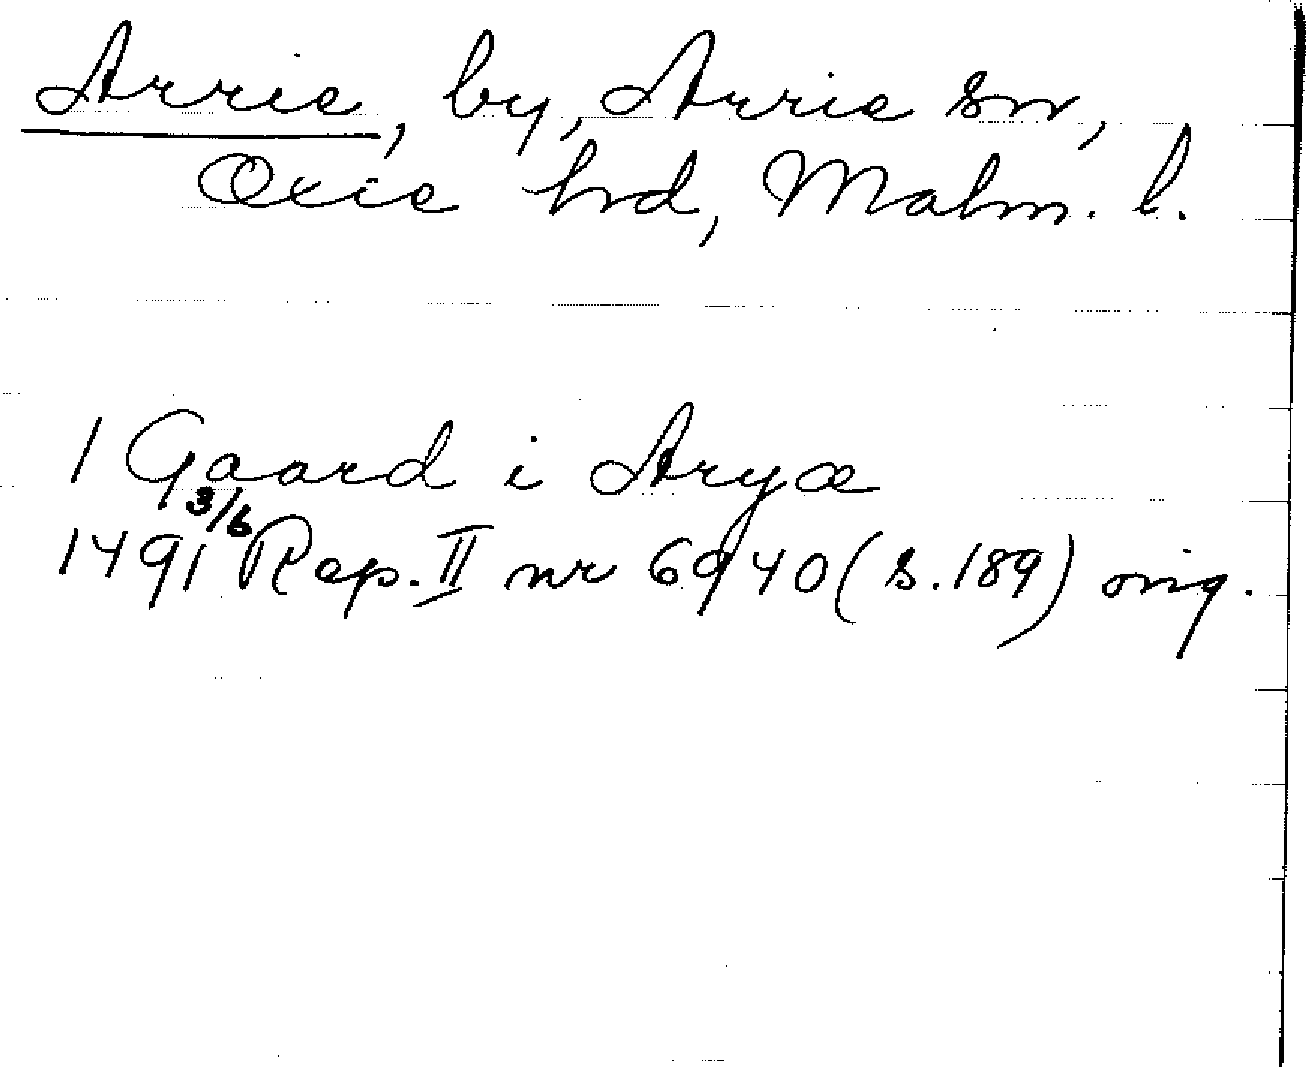 Arrie, by, Arrie sn,
Oxie hrd, Malm. l.
1 Gaard i Aryæ
1491 3/6 Rep. II nr 6940 (s. 189) orig.